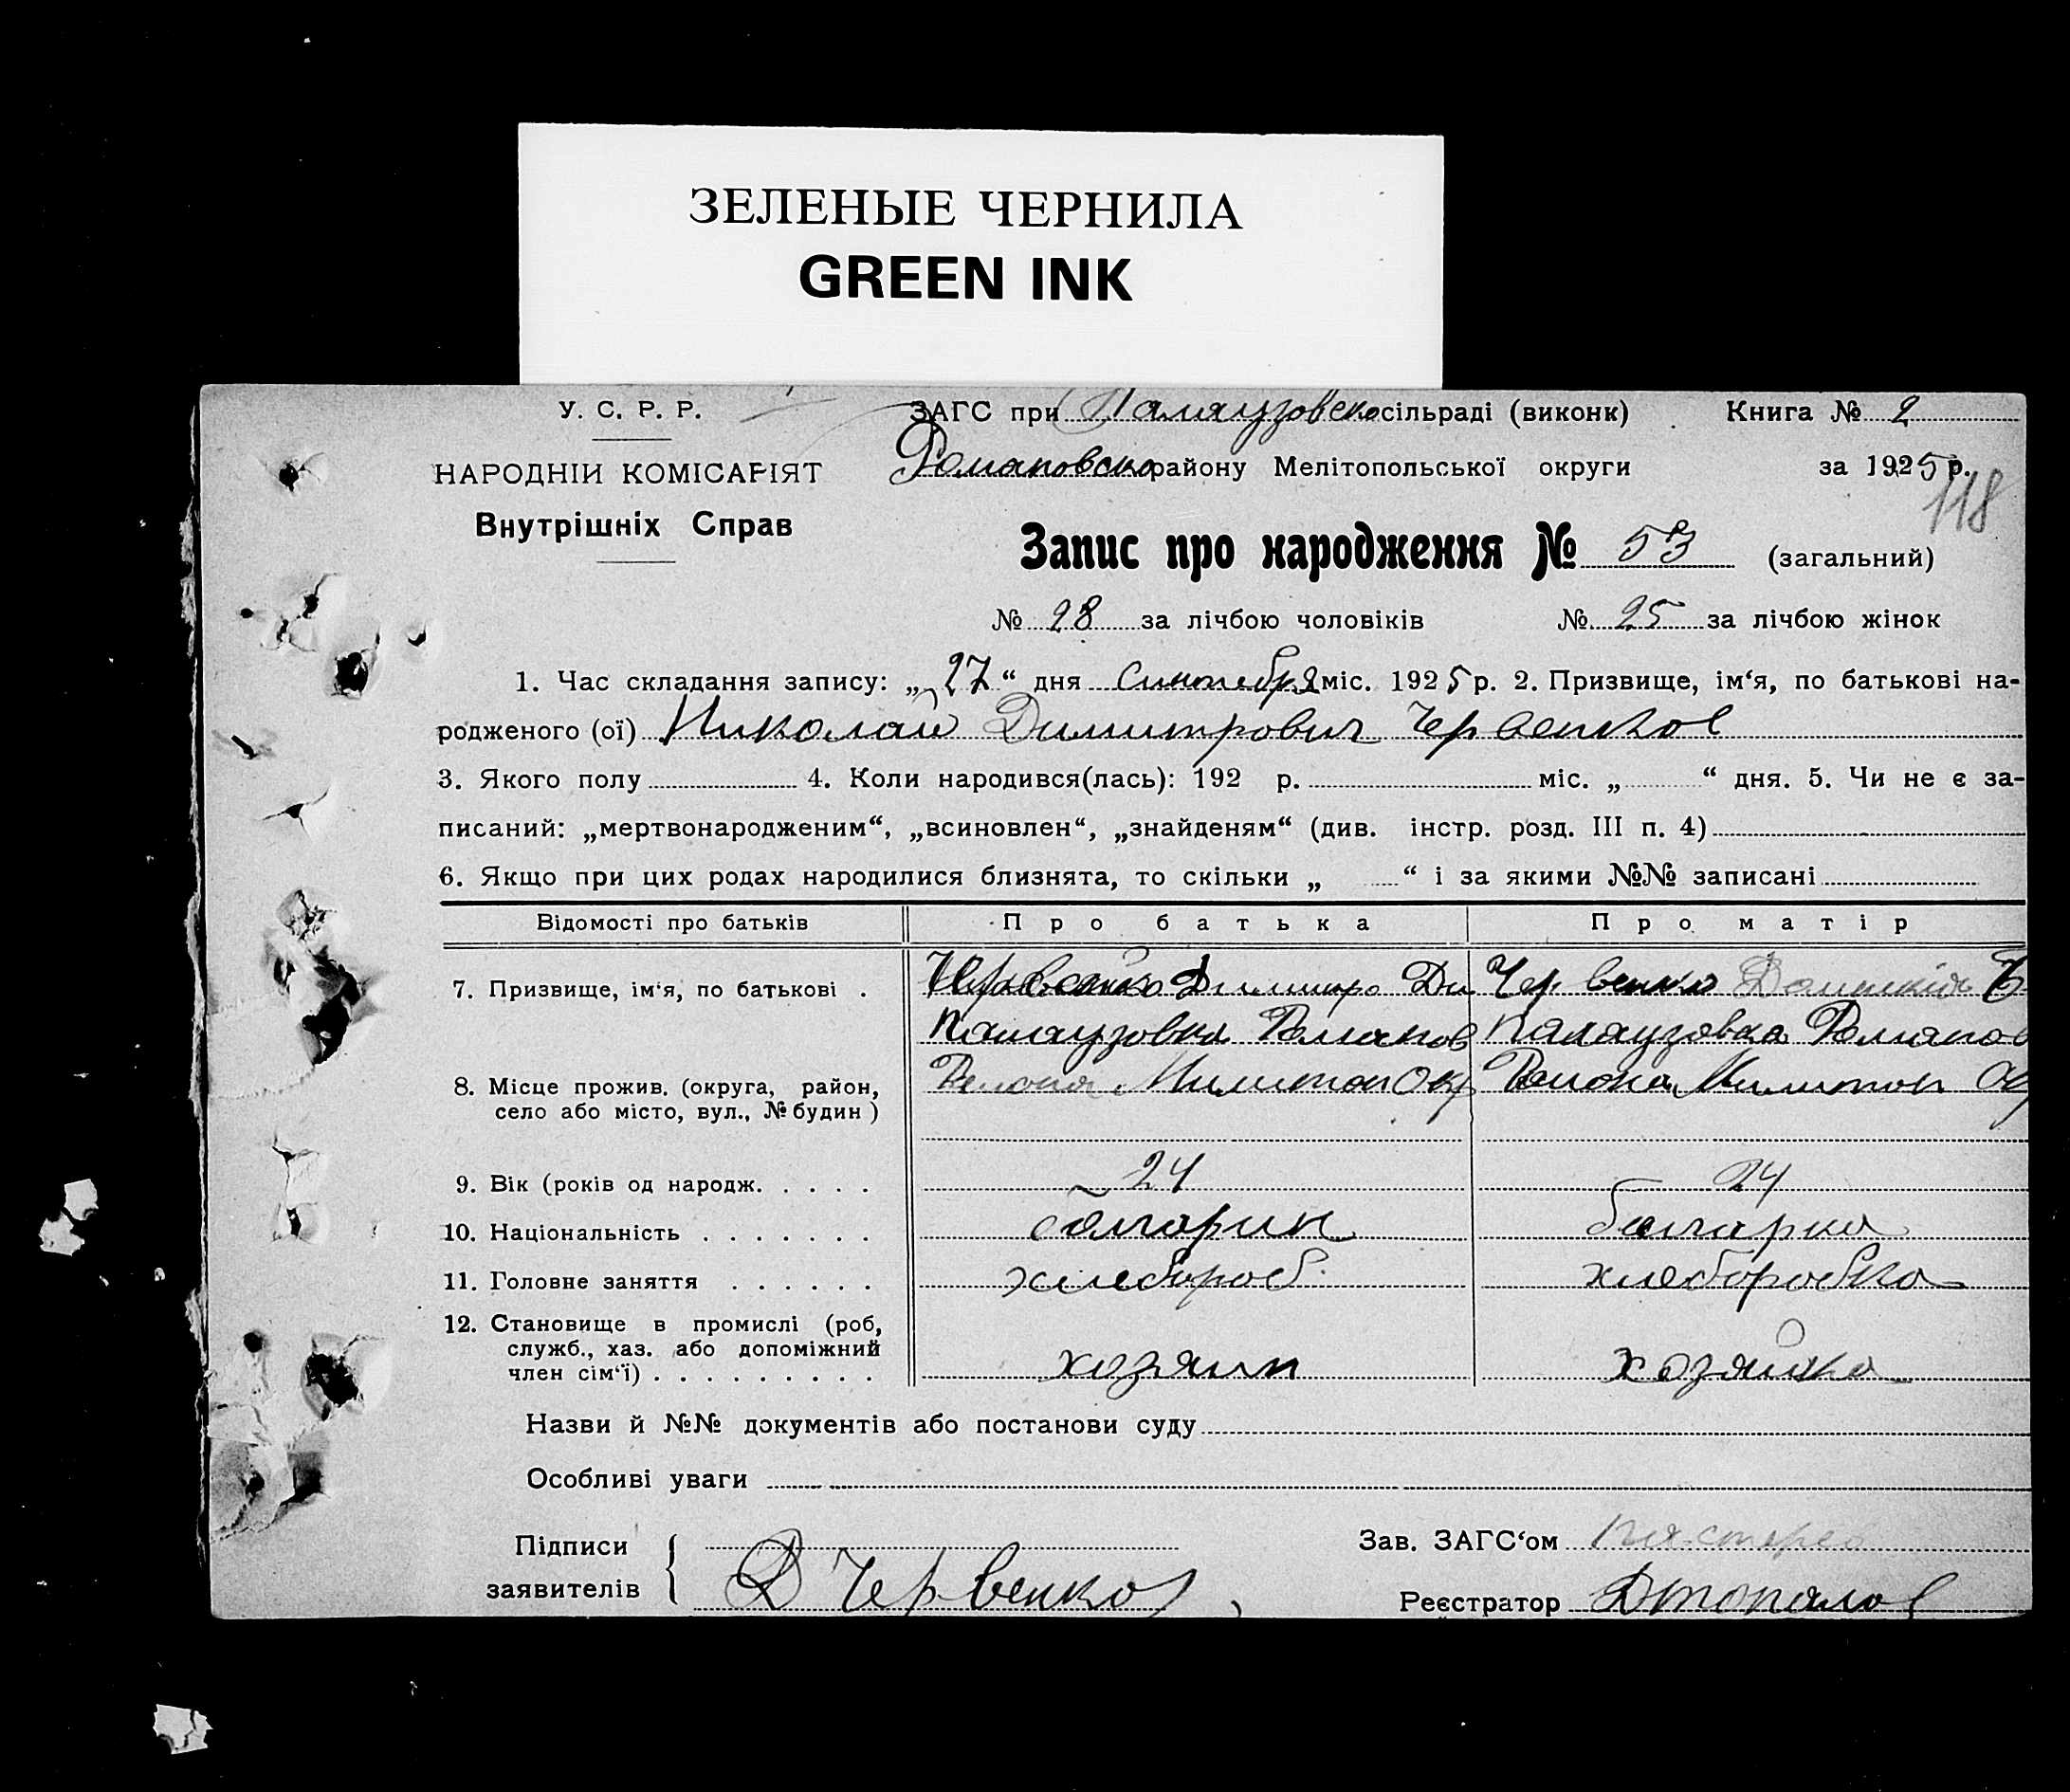 ЗЕЛЕНЫЕ ЧЕРНИЛА
GREEN INK
У. С. Р. Р.
НАРОДНІИ КОМІСАРІЯТ
Внутрішніх Справ
ЗАГС при Палаузовско сільраді (виконк) Книга № 2
Романовско району Мелітопольської округи за 1925 р.
118
Запис про народження № 53 (загальний)
№ 28 за лічбою чоловіків № 25 за лічбою жінок
1. Час складання запису: „27“ дня Синтебря міс. 1925 р. 2. Призвище, ім‘я, по батькові на-
родженого (ої) Николай Димитрович Червенков
3. Якого полу 4. Коли народився(лась): 192 р. міс. „ “ дня. 5. Чи не є за-
писаний: „мертвонародженим“, „всиновлен“, „знайденям“ (див. інстр. розд. III п. 4)
6. Якщо при цих родах народилися близнята, то скільки „ “ і за якими №№ записані
Відомості про батьків Про батька Про матір
7. Призвище, ім‘я, по батькові . Червенко Димитро Ди Червенко
Палаузовка Романов Палаузовка Романов
8. Місце прожив. (округа, район, село або місто, вул., № будин ) Району Милитоп Окр Району Милитоп Окр
9. Вік (років од народж. . . . . 24 24
10. Національність . . . . . . . болгарин болгарка
11. Головне заняття . . . . . . хлебороб. хлеборобка
12. Становище в промислі (роб, служб., хаз. або допоміжний член сім‘ї) . . . . . . . . . хозяин хозяйка
Назви й №№ документів або постанови суду
Особливі уваги
Підписи заявителів Д Червенков
Зав. ЗАГС‘ом
Реєстратор Дтопалов